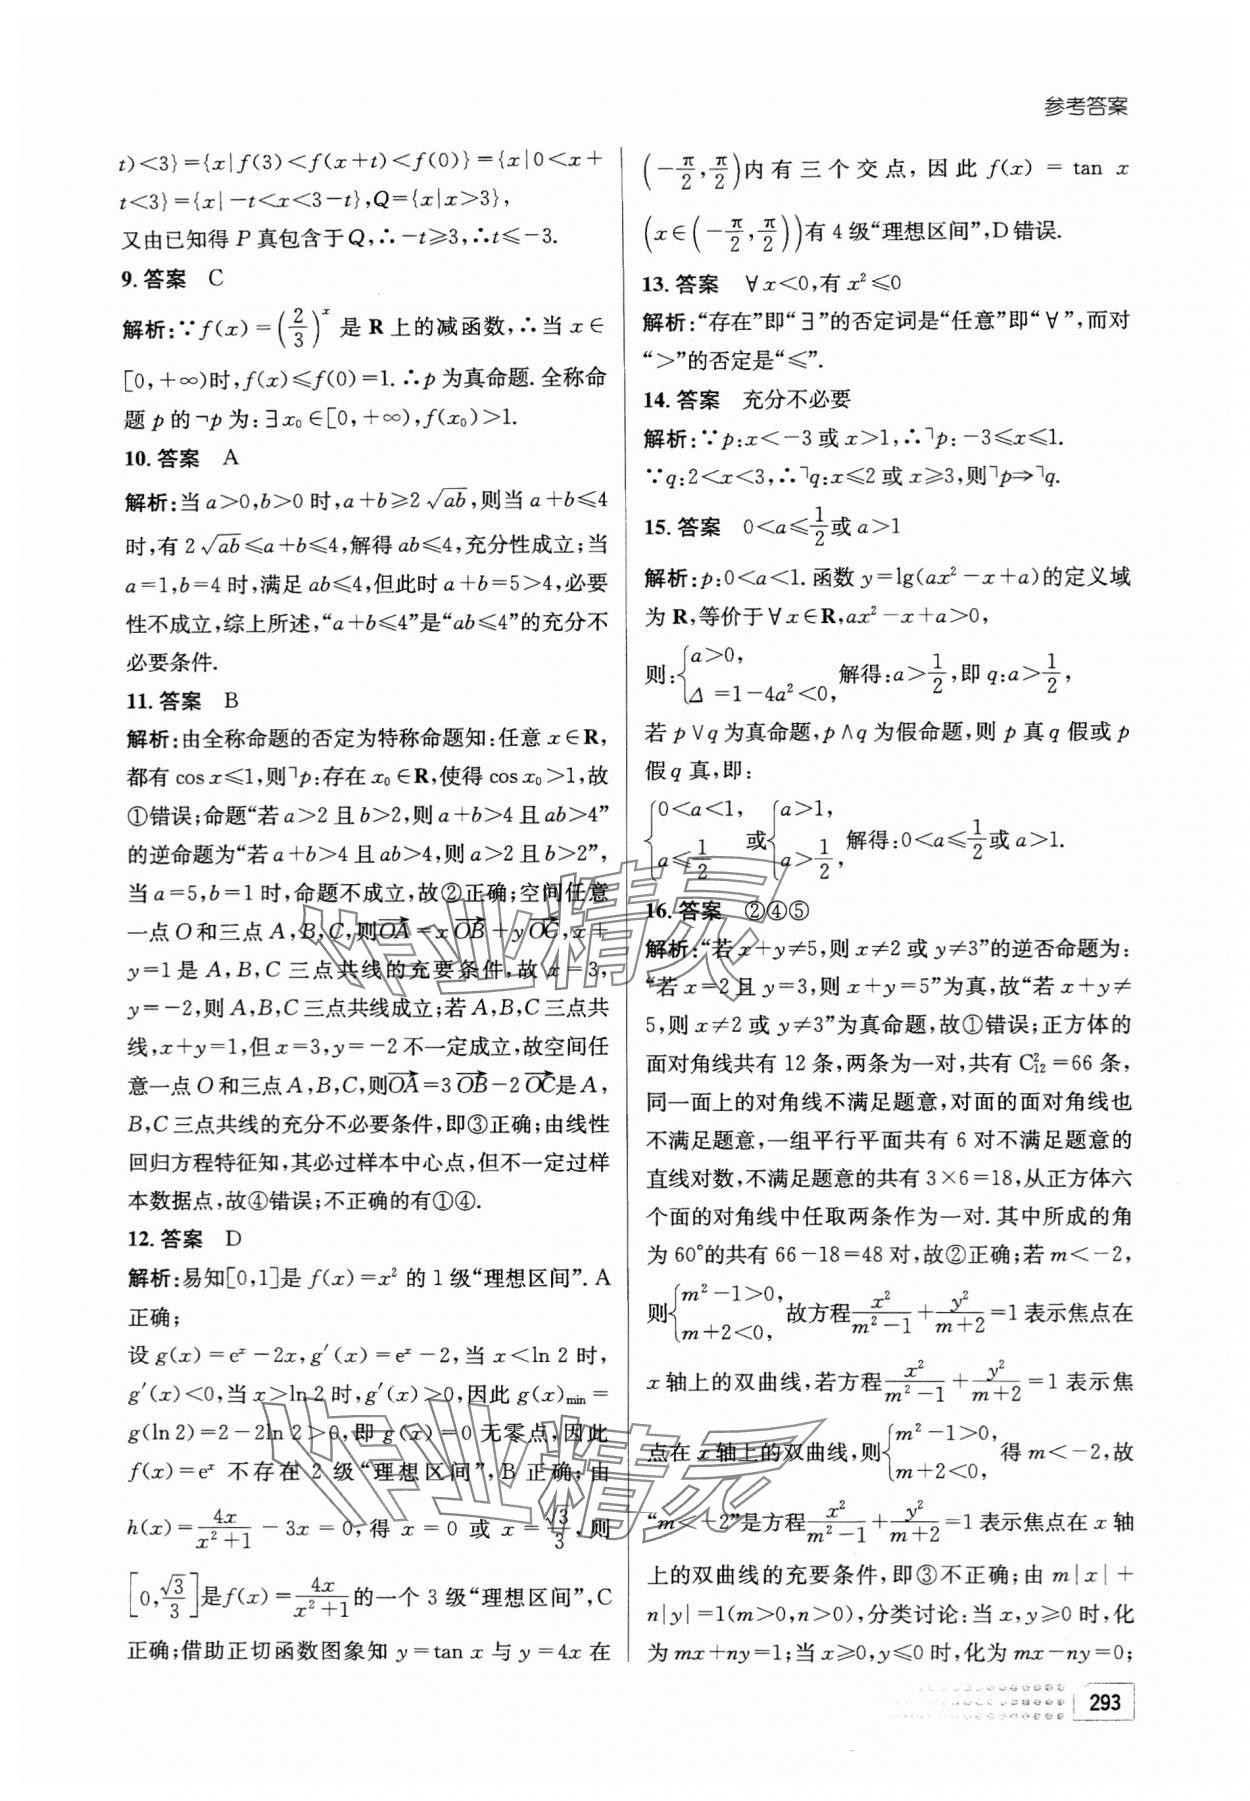 参考答案
t)<3}={x|f(3)<f(x+t)<f(0)}={x|0<x+
t<3}={x|-t<x<3-t},Q={x|x>3},
又由已知得 P 真包含于 Q,∴-t≥3,∴t≤-3.
9. 答案　C
解析:∵f(x)=(2/3)^x 是 R 上的减函数,∴当 x∈
[0,+∞)时,f(x)≤f(0)=1.∴p 为真命题.全称命
题 p 的¬p 为:∃x₀∈[0,+∞),f(x₀)>1.
10. 答案　A
解析:当 a>0,b>0 时,a+b≥2√ab,则当 a+b≤4
时,有 2√ab≤a+b≤4,解得 ab≤4,充分性成立;当
a=1,b=4 时,满足 ab≤4,但此时 a+b=5>4,必要
性不成立,综上所述,“a+b≤4”是“ab≤4”的充分不
必要条件.
11. 答案　B
解析:由全称命题的否定为特称命题知:任意 x∈R,
都有 cos x≤1,则⌉p:存在 x₀∈R,使得 cos x₀>1,故
①错误;命题“若 a>2 且 b>2,则 a+b>4 且 ab>4”
的逆命题为“若 a+b>4 且 ab>4,则 a>2 且 b>2”,
当 a=5,b=1 时,命题不成立,故②正确;空间任意
一点 O 和三点 A,B,C,则OA→=xOB→+yOC→,x+
y=1 是 A,B,C 三点共线的充要条件,故 x=3,
y=-2,则 A,B,C 三点共线成立;若 A,B,C 三点共
线,x+y=1,但 x=3,y=-2 不一定成立,故空间任
意一点 O 和三点 A,B,C,则OA→=3OB→-2OC→是 A,
B,C 三点共线的充分不必要条件,即③正确;由线性
回归方程特征知,其必过样本中心点,但不一定过样
本数据点,故④错误;不正确的有①④.
12. 答案　D
解析:易知[0,1]是 f(x)=x² 的 1 级“理想区间”.A
正确;
设 g(x)=eˣ-2x,g′(x)=eˣ-2,当 x<ln 2 时,
g′(x)<0,当 x>ln 2 时,g′(x)>0,因此 g(x)min=
g(ln 2)=2-2ln 2>0,即 g(x)=0 无零点,因此
f(x)=eˣ 不存在 2 级“理想区间”,B 正确;由
h(x)=4x/(x²+1)-3x=0,得 x=0 或 x=√3/3,则
[0,√3/3]是 f(x)=4x/(x²+1)的一个 3 级“理想区间”,C
正确;借助正切函数图象知 y=tan x 与 y=4x 在
(-π/2,π/2)内有三个交点,因此 f(x)=tan x
(x∈(-π/2,π/2))有 4 级“理想区间”,D 错误.
13. 答案　∀x<0,有 x²≤0
解析:“存在”即“∃”的否定词是“任意”即“∀”,而对
“>”的否定是“≤”.
14. 答案　充分不必要
解析:∵p:x<-3 或 x>1,∴⌉p:-3≤x≤1.
∵q:2<x<3,∴⌉q:x≤2 或 x≥3,则⌉p⇒⌉q.
15. 答案　0<a≤1/2或 a>1
解析:p:0<a<1.函数 y=lg(ax²-x+a)的定义域
为 R,等价于∀x∈R,ax²-x+a>0,
则:{a>0,Δ=1-4a²<0,解得:a>1/2,即 q:a>1/2,
若 p∨q 为真命题,p∧q 为假命题,则 p 真 q 假或 p
假 q 真,即:
{0<a<1,a≤1/2 或{a>1,a>1/2,解得:0<a≤1/2或 a>1.
16. 答案　②④⑤
解析:“若 x+y≠5,则 x≠2 或 y≠3”的逆否命题为:
“若 x=2 且 y=3,则 x+y=5”为真,故“若 x+y≠
5,则 x≠2 或 y≠3”为真命题,故①错误;正方体的
面对角线共有 12 条,两条为一对,共有 C²₁₂=66 条,
同一面上的对角线不满足题意,对面的面对角线也
不满足题意,一组平行平面共有 6 对不满足题意的
直线对数,不满足题意的共有 3×6=18,从正方体六
个面的对角线中任取两条作为一对.其中所成的角
为 60°的共有 66-18=48 对,故②正确;若 m<-2,
则{m²-1>0,m+2<0,故方程x²/(m²-1)+y²/(m+2)=1 表示焦点在
x 轴上的双曲线,若方程x²/(m²-1)+y²/(m+2)=1 表示焦
点在 x 轴上的双曲线,则{m²-1>0,m+2<0,得 m<-2,故
“m<-2”是方程x²/(m²-1)+y²/(m+2)=1 表示焦点在 x 轴
上的双曲线的充要条件,即③不正确;由 m|x|+
n|y|=1(m>0,n>0),分类讨论:当 x,y≥0 时,化
为 mx+ny=1;当 x≥0,y≤0 时,化为 mx-ny=0;
293
作业精灵
作业精灵